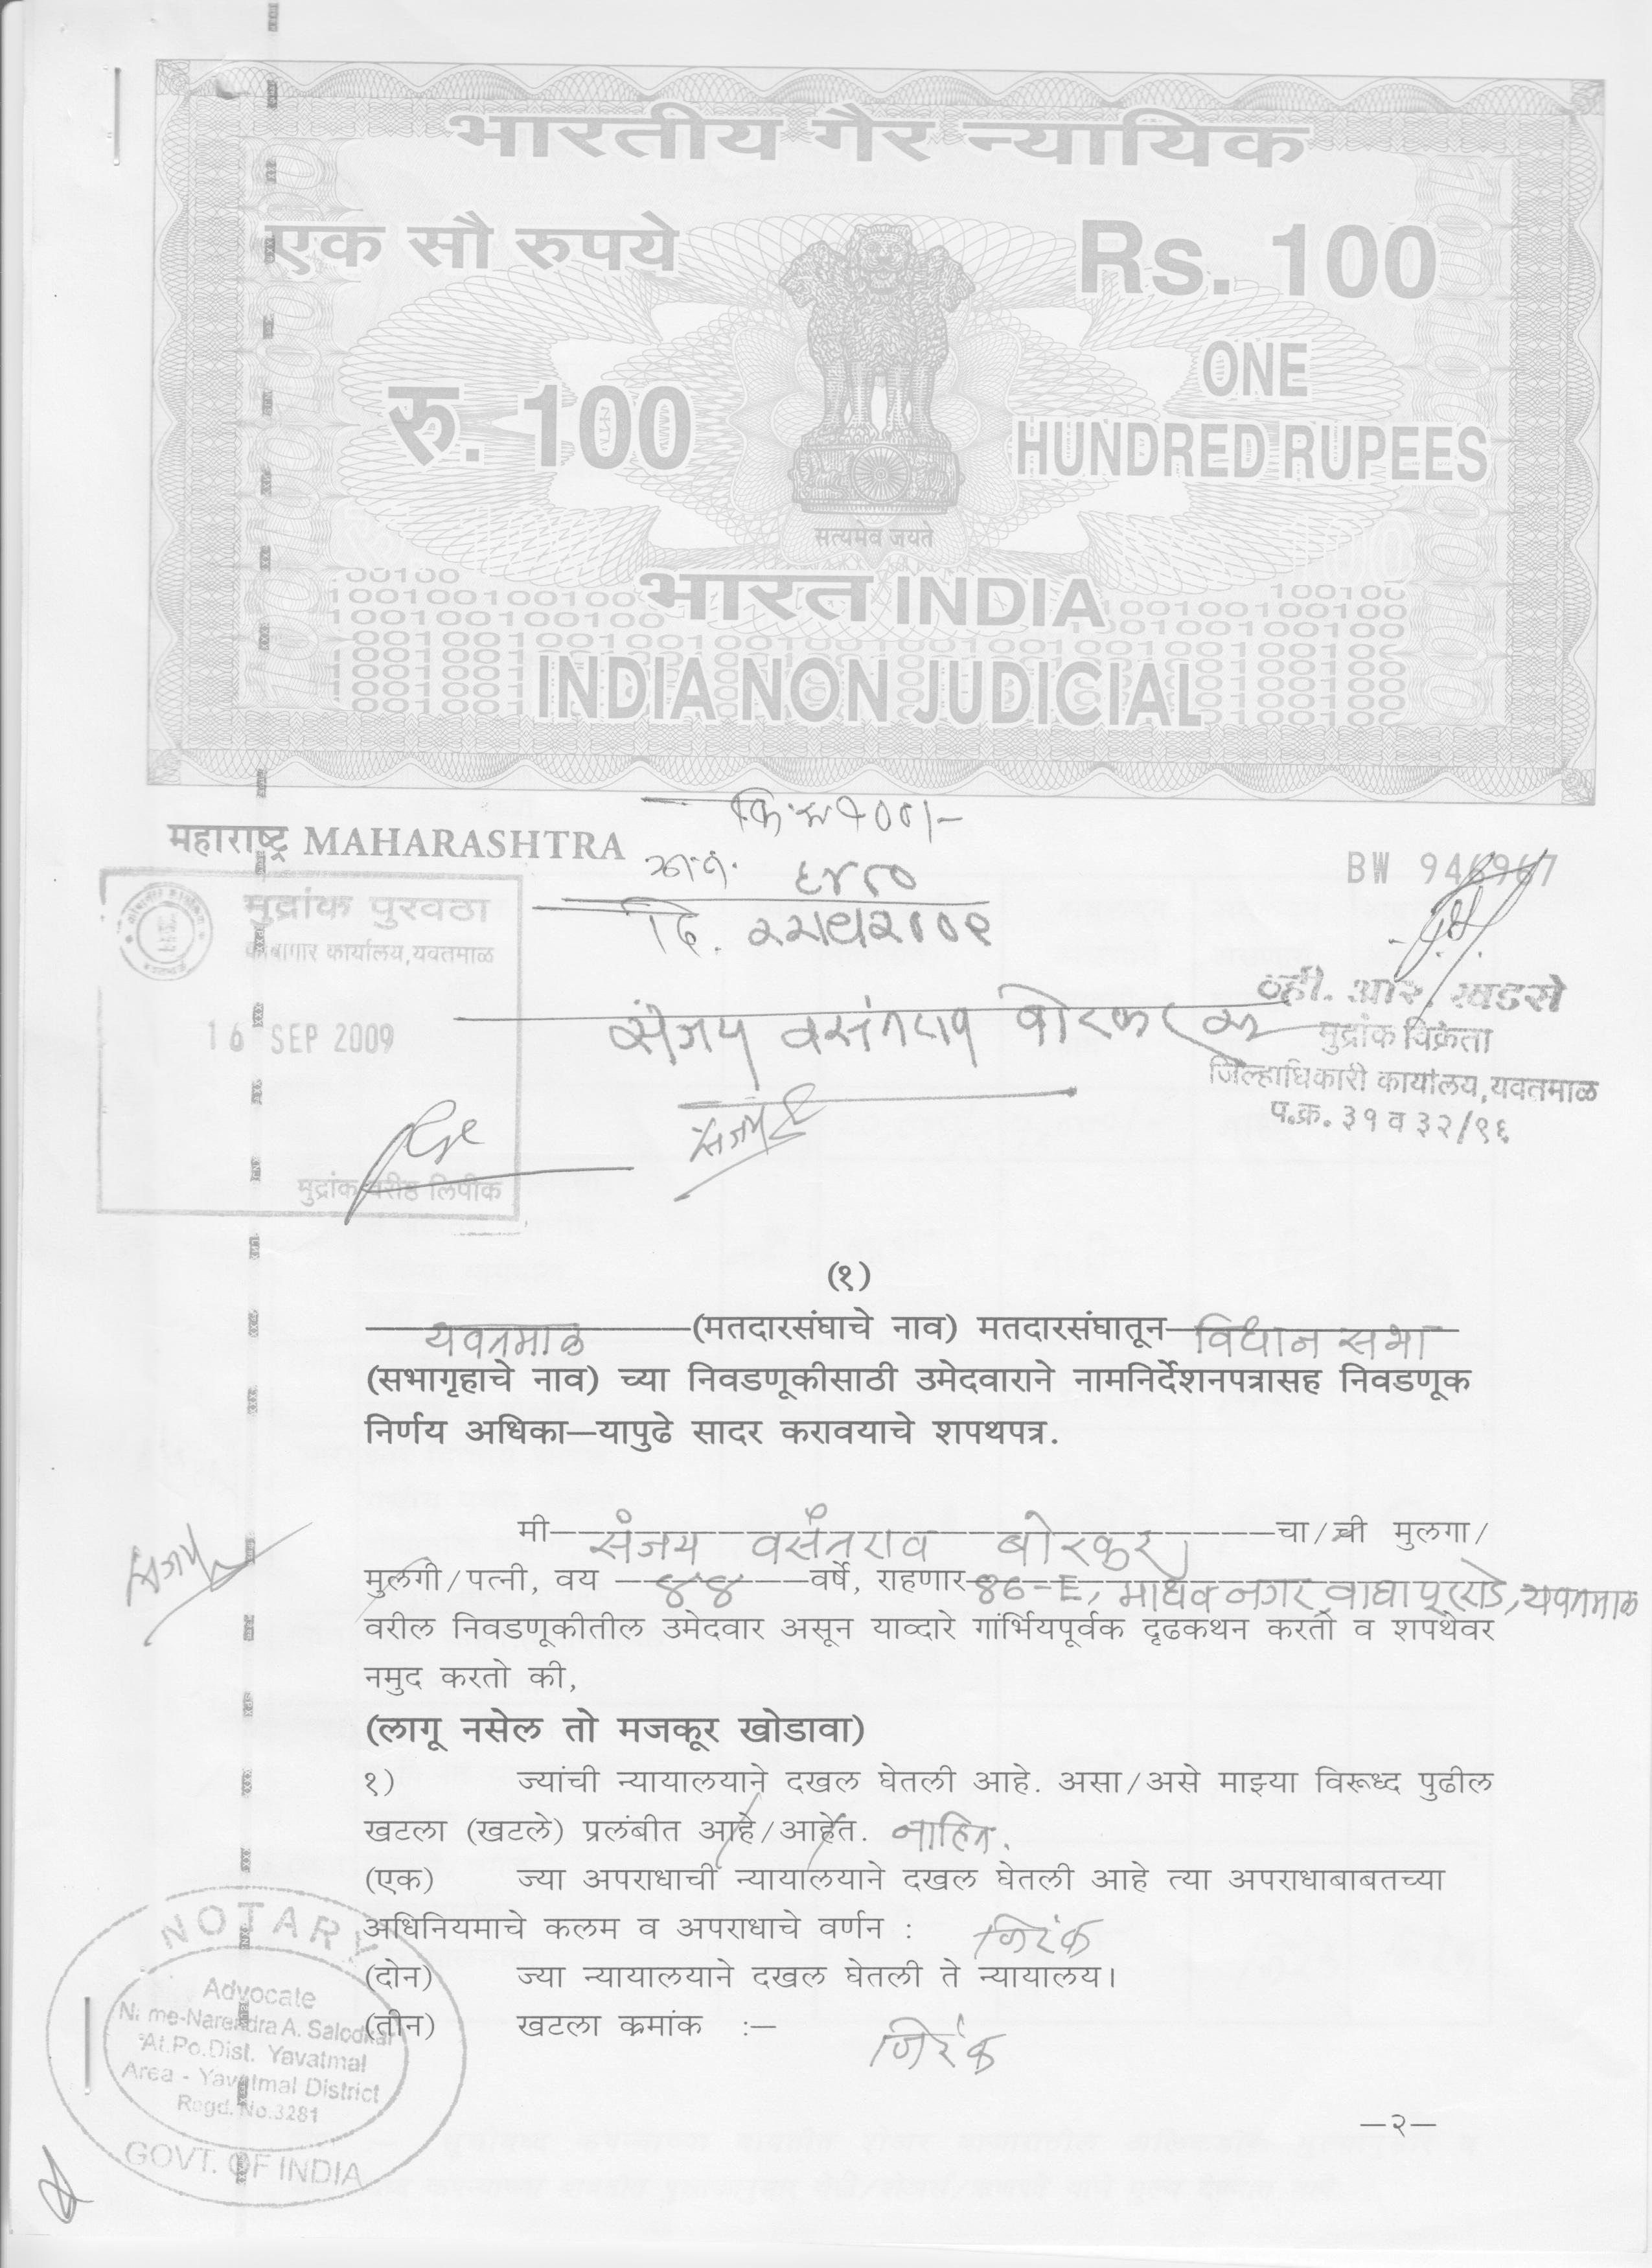 भारतीय गैर न्यायिक
एक सौ रुपये
Rs. 100
रु. 100
ONE
HUNDRED RUPEES
सत्यमेव जयते
भारत INDIA
INDIA NON JUDICIAL
महाराष्ट्र MAHARASHTRA
BW 946967
मुद्रांक पुरवठा
कोषागार कार्यालय,यवतमाळ
16 SEP 2009
मुद्रांक वरीष्ठ लिपीक
संजय वसंतराव बोरकर
व्ही. आर. खडसे
मुद्रांक विक्रेता
जिल्हाधिकारी कार्यालय,यवतमाळ
प.क्र. ३१ व ३२/९६
(१)
यवतमाळ (मतदारसंघाचे नाव) मतदारसंघातून विधान सभा
(सभागृहाचे नाव) च्या निवडणूकीसाठी उमेदवाराने नामनिर्देशनपत्रासह निवडणूक
निर्णय अधिका—यापुढे सादर करावयाचे शपथपत्र.
मी संजय वसंतराव बोरकर चा/ची मुलगा/
मुलगी/पत्नी, वय ४४ वर्षे, राहणार 86-E, माधव नगर, वाघापूर रोड, यवतमाळ
वरील निवडणूकीतील उमेदवार असून याव्दारे गांर्भियपूर्वक दृढकथन करतो व शपथेवर
नमुद करतो की,
(लागू नसेल तो मजकूर खोडावा)
१) ज्यांची न्यायालयाने दखल घेतली आहे. असा/असे माझ्या विरूध्द पुढील
खटला (खटले) प्रलंबीत आहे/आहेत. नाहित.
(एक) ज्या अपराधाची न्यायालयाने दखल घेतली आहे त्या अपराधाबाबतच्या
अधिनियमाचे कलम व अपराधाचे वर्णन : निरंक
(दोन) ज्या न्यायालयाने दखल घेतली ते न्यायालय।
(तीन) खटला क्रमांक :— निरंक
NOTARY
Advocate
Name-Narendra A. Salodkar
At.Po.Dist. Yavatmal
Area - Yavatmal District
Regd. No.3281
GOVT. OF INDIA
—२—